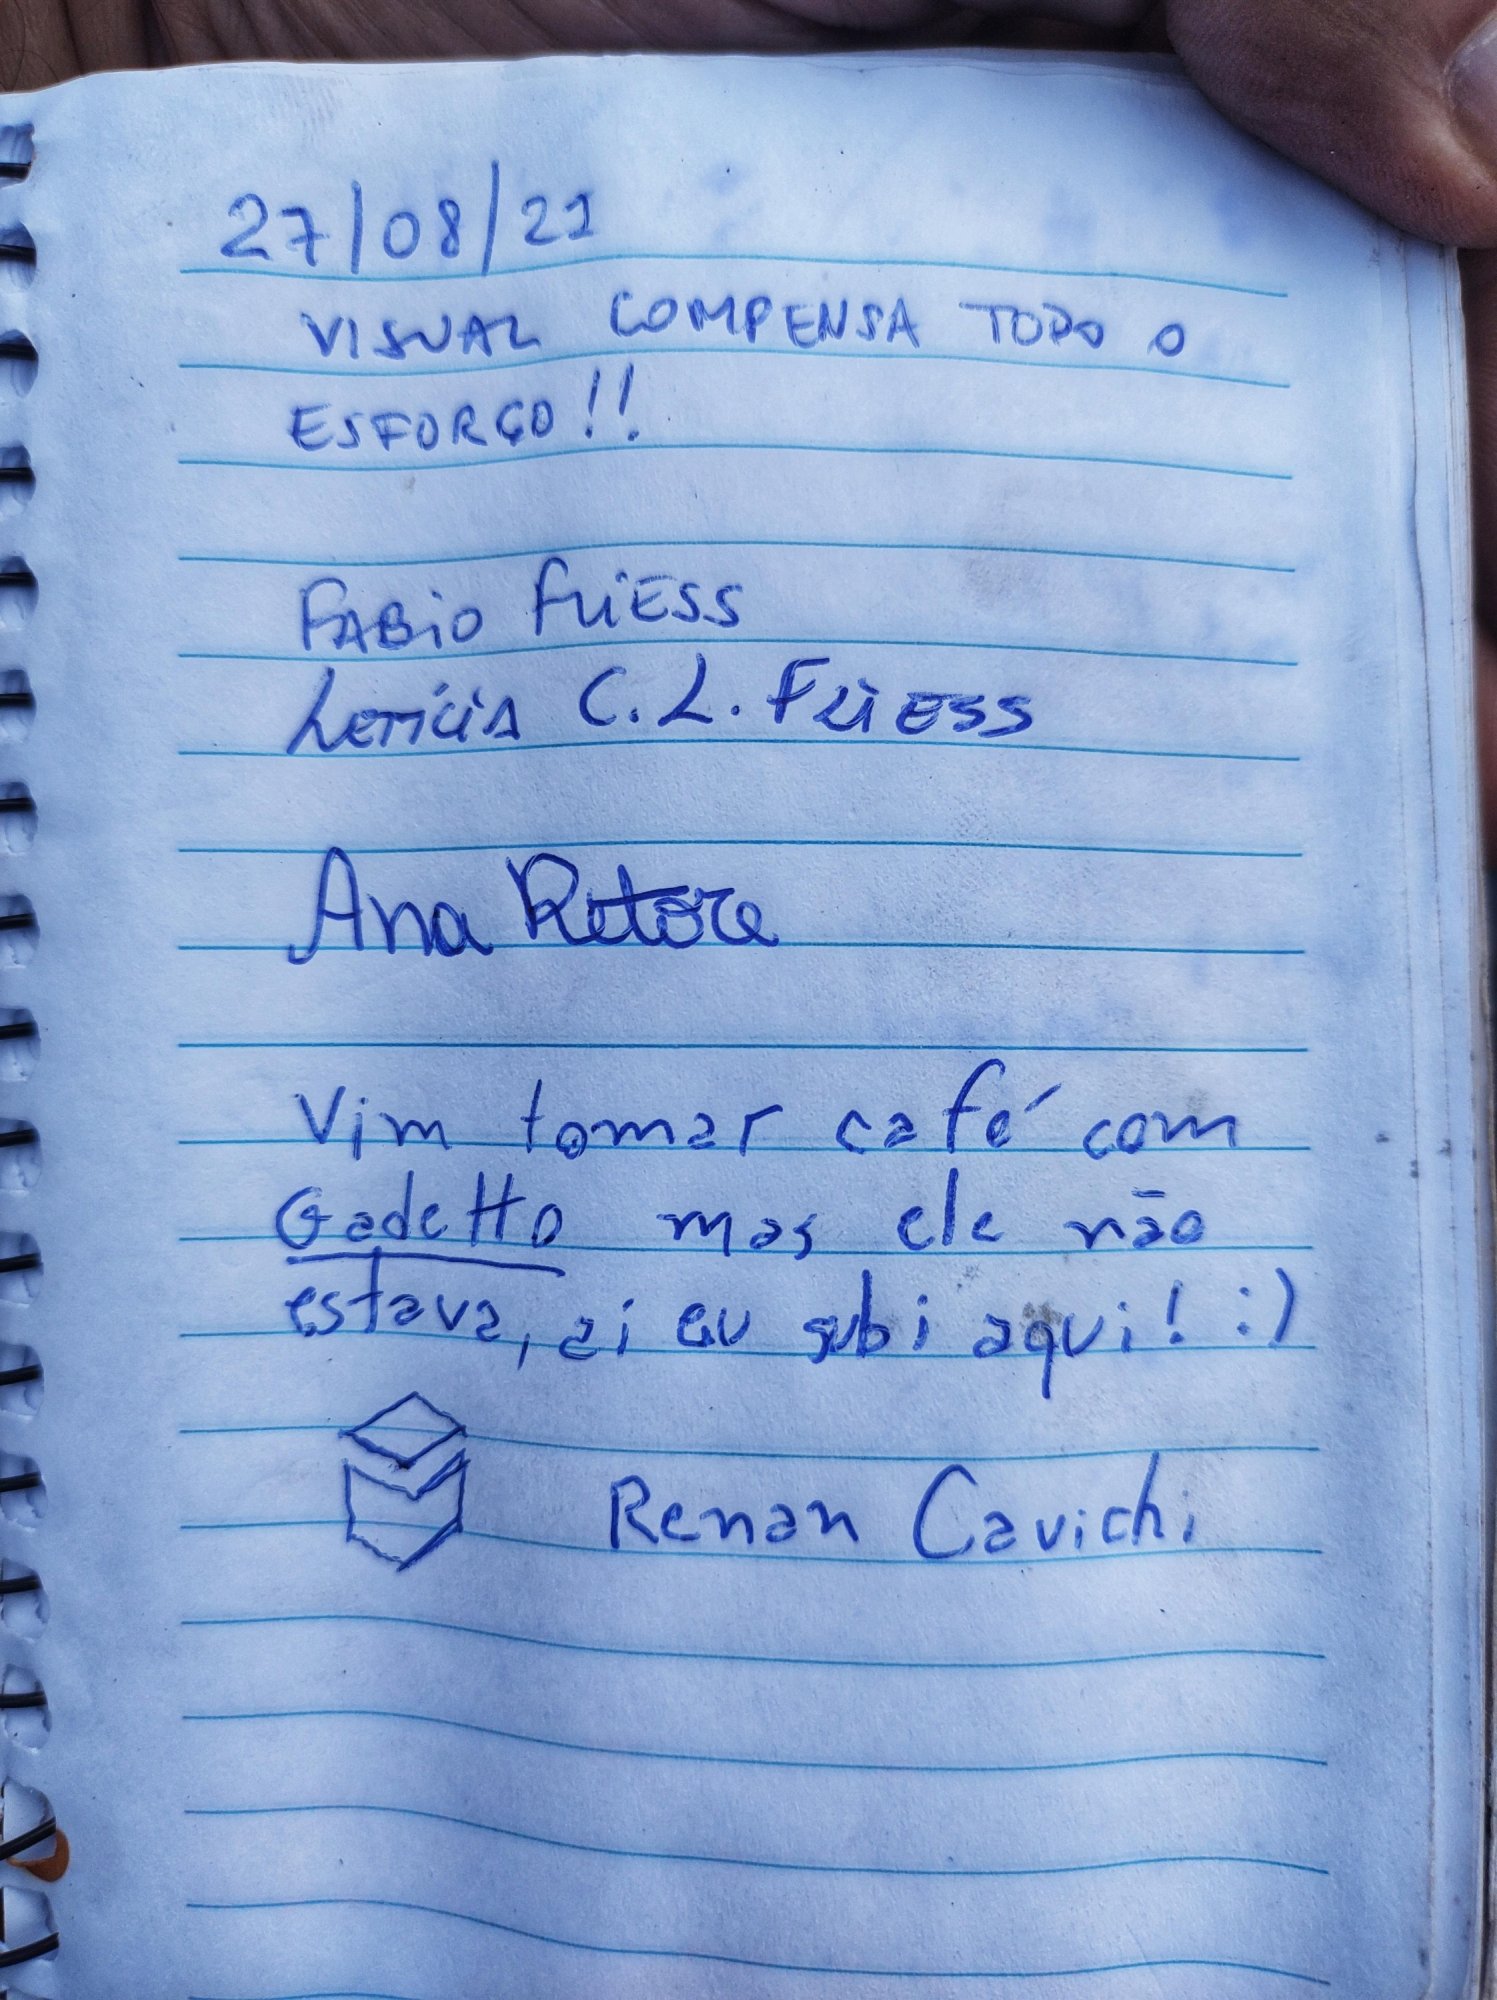 27/08/21
VISUAL COMPENSA TODO O
ESFORÇO!!
FABIO FLIESS
LETÍCIA C.L. FLIESS
Ana Retore
Vim tomar café com
Gadetto mas ele não
estava, ai eu subi aqui! :)
Renan Cavichi